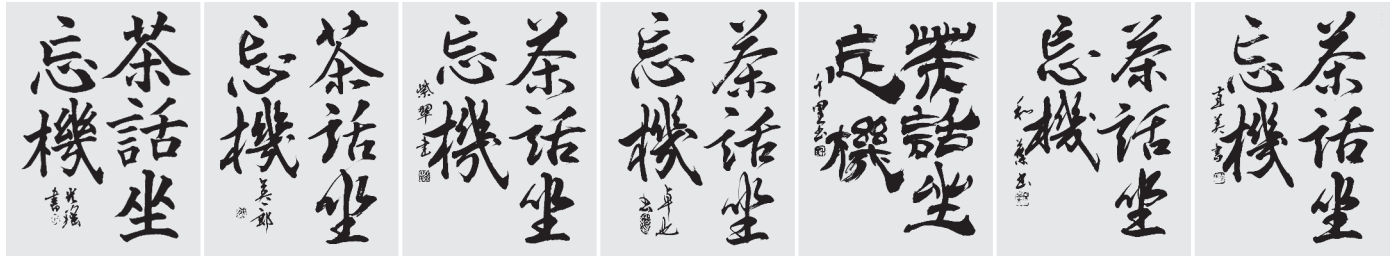 茶話坐
忘機
書
茶話坐
忘機
茶話坐
忘機
紫翠書
茶話坐
忘機
卓也書
茶話坐
忘機
千里書
茶話坐
忘機
茶話坐
忘機
直美書